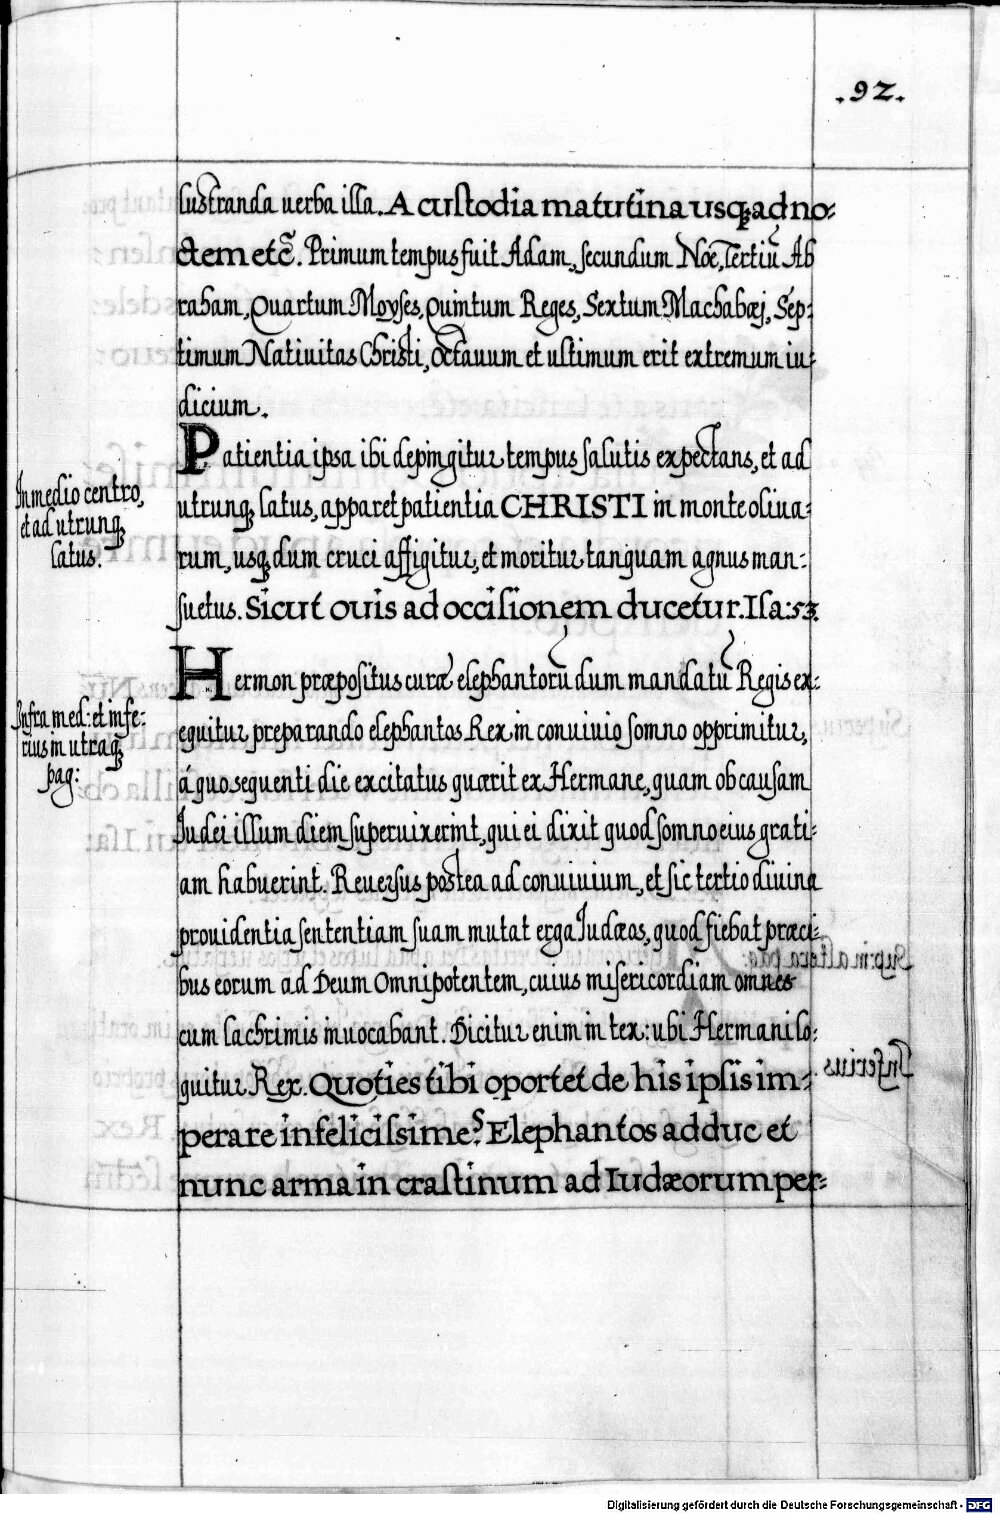 .92.
lustranda uerba illa. A custodia matutina usq; ad no-
ctem etc̃. Primum tempus fuit Adam, secundum Noë, Tertiũ Ab
raham, Quartum Moyses, Quintum Reges, Sextum Machabæj, Sep-
timum Natiuitas Christi, Octauum et ultimum erit extremum iu-
dicium.
Patientia ipsa ibi depingitur tempus salutis expectans, et ad
utrunq; latus, apparet patientia CHRISTI in monte oliua-
rum, usq; dum cruci affigitur, et moritur tanquam agnus man-
suetus. Sicut ouis ad occisionem ducetur. Isa: 53.
In medio centro,
et ad utrunq;
latus.
Hermon præpositus curæ elephantorũ dum mandatũ Regis ex-
equitur preparando elephantos Rex in conuiuio somno opprimitur,
á quo sequenti die excitatus quærit ex Hermane, quam ob causam
Judei illum diem superuixerint, qui ei dixit quod somno eius grati-
am habuerint. Reuersus postea ad conuiuium, et sic tertio diuina
prouidentia sententiam suam mutat erga Judæos, quod fiebat præci-
bus eorum ad Deum Omnipotentem, cuius misericordiam omnes
cum lachrimis inuocabant. Dicitur enim in tex: ubi Hermani lo-
quitur Rex. Quoties tibi oportet de his ipsis im-
perare infelicissime? Elephantos adduc et
nunc arma in crastinum ad Iudæorum per-
Infra med: et infe-
rius in utraq;
pag:
Digitalisierung gefördert durch die Deutsche Forschungsgemeinschaft - DFG